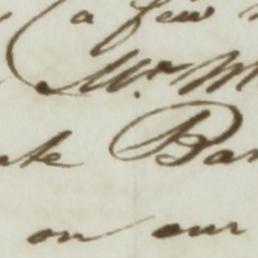 a few
Mr. M
te Bar
on our